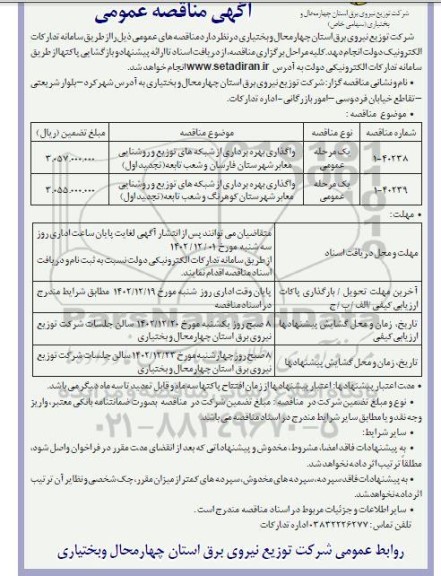 شرکت توزیع نیروی برق استان چهارمحال و بختیاری (سهامی خاص)
آگهی مناقصه عمومی
شرکت توزیع نیروی برق استان چهارمحال وبختیاری در نظر دارد مناقصه های عمومی ذیل را از طریق سامانه تدارکات
الکترونیک دولت انجام دهد. کلیه مراحل برگزاری مناقصه، از دریافت اسناد تا ارائه پیشنهاد و بازگشایی پاکتها از طریق
سامانه تدارکات الکترونیکی دولت به آدرس www.setadiran.ir انجام خواهد شد.
• نام و نشانی مناقصه گزار: شرکت توزیع نیروی برق استان چهارمحال و بختیاری به آدرس شهرکرد – بلوار شریعتی
– تقاطع خیابان فردوسی – امور بازرگانی – اداره تدارکات.
• موضوع مناقصه :
شماره مناقصه نوع مناقصه موضوع مناقصه مبلغ تضمین (ریال)
۱-۴۰۲۳۸ یک مرحله عمومی واگذاری بهره برداری از شبکه های توزیع و روشنایی معابر شهرستان فارسان و شعب تابعه (تجدید اول) ۳،۰۵۷،۰۰۰،۰۰۰
۱-۴۰۲۳۹ یک مرحله عمومی واگذاری بهره برداری از شبکه های توزیع و روشنایی معابر شهرستان کوهرنگ و شعب تابعه (تجدید اول) ۳،۰۵۵،۰۰۰،۰۰۰
• مهلت :
مهلت و محل دریافت اسناد متقاضیان می توانند پس از انتشار آگهی لغایت پایان ساعت اداری روز
سه شنبه مورخ ۱۴۰۲/۱۲/۰۱
از طریق سامانه تدارکات الکترونیکی دولت نسبت به ثبت نام و دریافت
اسناد مناقصه اقدام نمایند.
آخرین مهلت تحویل / بارگذاری پاکات ارزیابی کیفی / الف / ب / ج پایان وقت اداری روز شنبه مورخ ۱۴۰۲/۱۲/۱۹ مطابق شرایط مندرج در اسناد مناقصه
تاریخ، زمان و محل گشایش پیشنهادها ارزیابی کیفی ۸ صبح روز یکشنبه مورخ ۱۴۰۲/۱۲/۲۰ سالن جلسات شرکت توزیع نیروی برق استان چهارمحال و بختیاری
تاریخ، زمان و محل گشایش پیشنهادها ۸ صبح روز چهارشنبه مورخ ۱۴۰۲/۱۲/۲۳ سالن جلسات شرکت توزیع نیروی برق استان چهارمحال و بختیاری
• مدت اعتبار پیشنهادها: اعتبار پیشنهادها از زمان افتتاح پاکتها سه ماه و قابل تمدید تا سه ماه دیگر می باشد.
• نوع و مبلغ تضمین شرکت در مناقصه : مبلغ تضمین شرکت در مناقصه بصورت ضمانتنامه بانکی معتبر، واریز
وجه نقد و یا مطابق سایر شرایط مندرج در اسناد مناقصه می باشد.
• سایر شرایط:
• به پیشنهادات فاقد امضا، مشروط، مخدوش و پیشنهاداتی که بعد از انقضای مدت مقرر در فراخوان واصل شود،
مطلقاً ترتیب اثر داده نخواهد شد.
• به پیشنهادات فاقد سپرده، سپرده های مخدوش، سپرده های کمتر از میزان مقرر، چک شخصی و نظایر آن ترتیب
اثر داده نخواهد شد.
• سایر اطلاعات و جزئیات مربوط در اسناد مناقصه مندرج است .
تلفن تماس : ۰۳۸۳۲۲۲۶۲۷۷ اداره تدارکات
روابط عمومی شرکت توزیع نیروی برق استان چهارمحال وبختیاری
ParsNamadData
۰۲۱-۸۸۳۴۹۶۷۰-۵